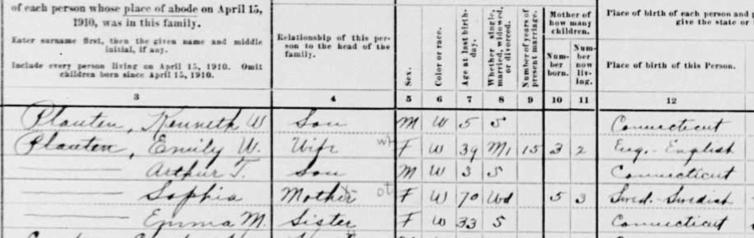 of each person whose place of abode on April 15,
1910, was in this family.
Enter surname first, then the given name and middle
initial, if any.
Include every person living on April 15, 1910. Omit
children born since April 15, 1910.
Relationship of this per-
son to the head of the
family.
Sex.
Color or race.
Age at last birth-
day.
Whether single,
married, widowed,
or divorced.
Number of years of
present marriage.
Mother of
how many
children.
Num-
ber
born.
Num-
ber
now
liv-
ing.
Place of birth of each person and
give the state or
Place of birth of this Person.
3 4 5 6 7 8 9 10 11 12
Planten, Kenneth W Son M W 5 S Connecticut
Planten, Emily W. Wife F W 39 M1 15 3 2 Eng.-English
Arthur T. Son M W 3 S Connecticut
Sophia Mother F W 70 Wd 5 3 Swed.-Swedish
Emma M. Sister F W 33 S Connecticut